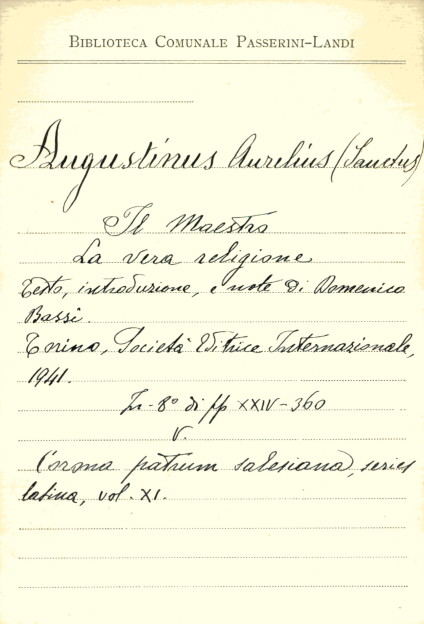 BIBLIOTECA COMUNALE PASSERINI-LANDI
Augustinus Aurelius (Sanctus)
Il Maestro
La vera religione
Testo, introduzione, e note di Domenico
Bassi.
Torino, Società Editrice Internazionale,
1941.
In-8° di pp XXIV-360
V.
Corona patrum salesiana, series
latina, vol. XI.